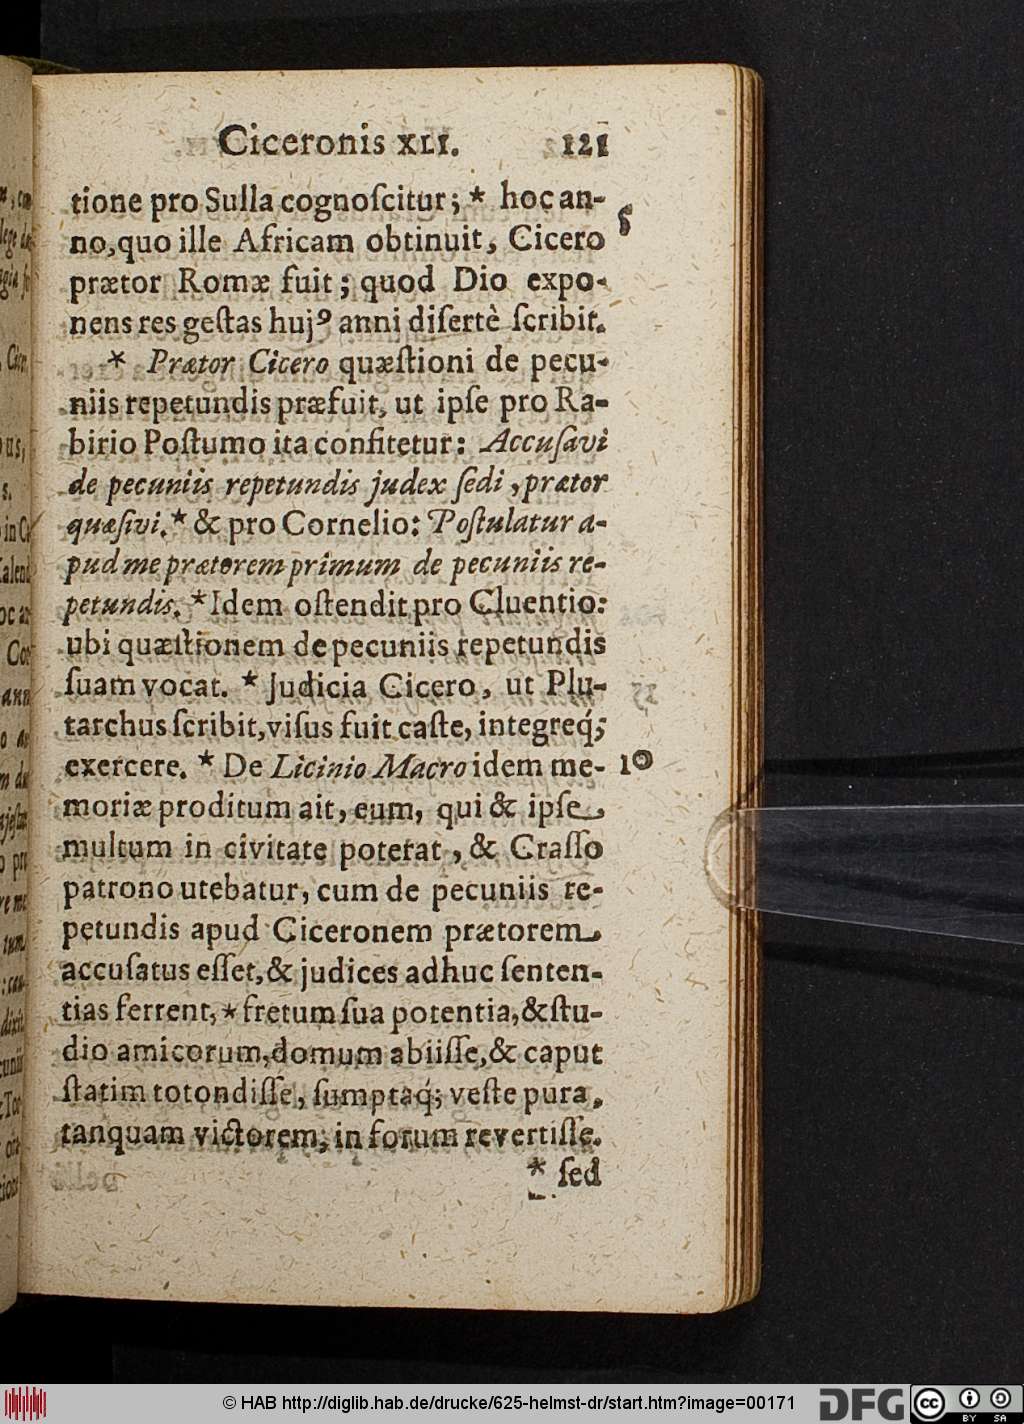 Ciceronis XLI. 121
tione pro Sulla cognoſcitur; * hoc an-
no, quo ille Africam obtinuit, Cicero
prætor Romæ fuit; quod Dio expo-
nens res geſtas hujꝰ anni diſertè ſcribit.
* Prætor Cicero quæſtioni de pecu-
niis repetundis præfuit, ut ipſe pro Ra-
birio Poſtumo ita confitetur: Accuſavi
de pecuniis repetundis judex ſedi, prætor
quæſivi. * & pro Cornelio: Poſtulatur a-
pud me prætorem primum de pecuniis re-
petundis. * Idem oſtendit pro Cluentio:
ubi quæſtionem de pecuniis repetundis
ſuam vocat. * Judicia Cicero, ut Plu-
tarchus ſcribit, viſus fuit caſte, integreq́;
exercere. * De Licinio Macro idem me- 10
moriæ proditum ait, eum, qui & ipſe
multum in civitate poterat, & Craſſo
patrono utebatur, cum de pecuniis re-
petundis apud Ciceronem prætorem
accuſatus eſſet, & judices adhuc ſenten-
tias ferrent, * fretum ſua potentia, & ſtu-
dio amicorum, domum abiiſſe, & caput
ſtatim totondiſſe, ſumptaq́; veſte pura,
tanquam victorem, in forum revertiſſe.
* ſed
© HAB http://diglib.hab.de/drucke/625-helmst-dr/start.htm?image=00171
DFG
cc BY SA